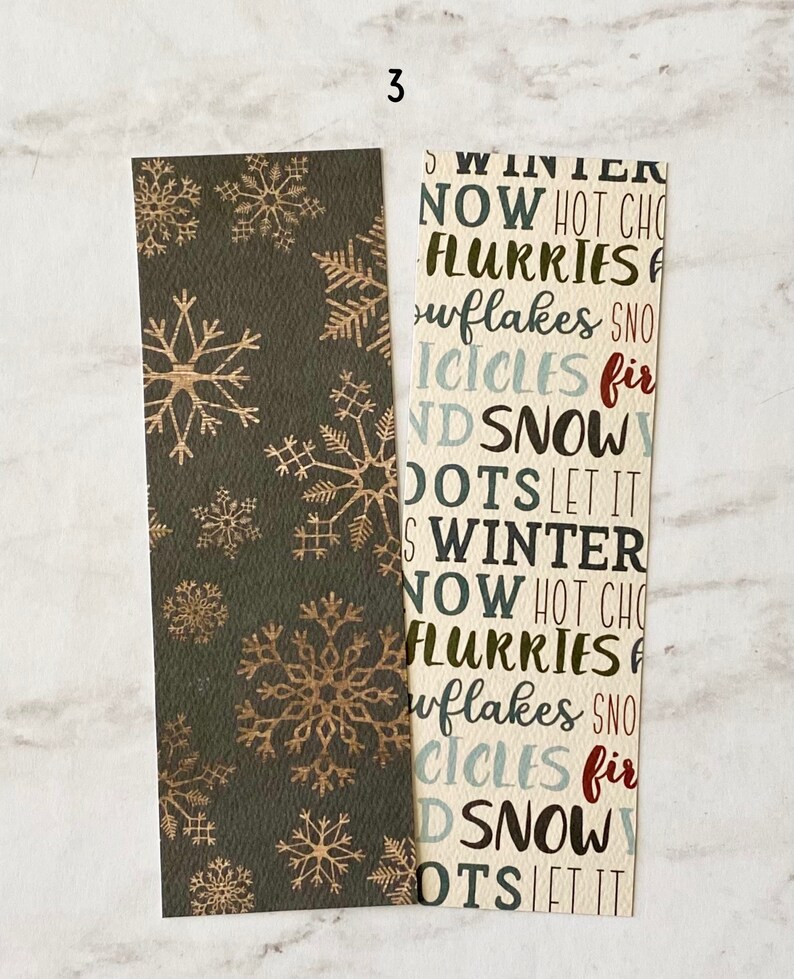 3
S WINTER
NOW HOT CHO
FLURRIES
owflakes SNO
ICICLES fir
ND SNOW
OOTS LET IT
S WINTER
NOW HOT CHO
FLURRIES
wflakes SNO
CICLES fir
D SNOW
OTS LET IT